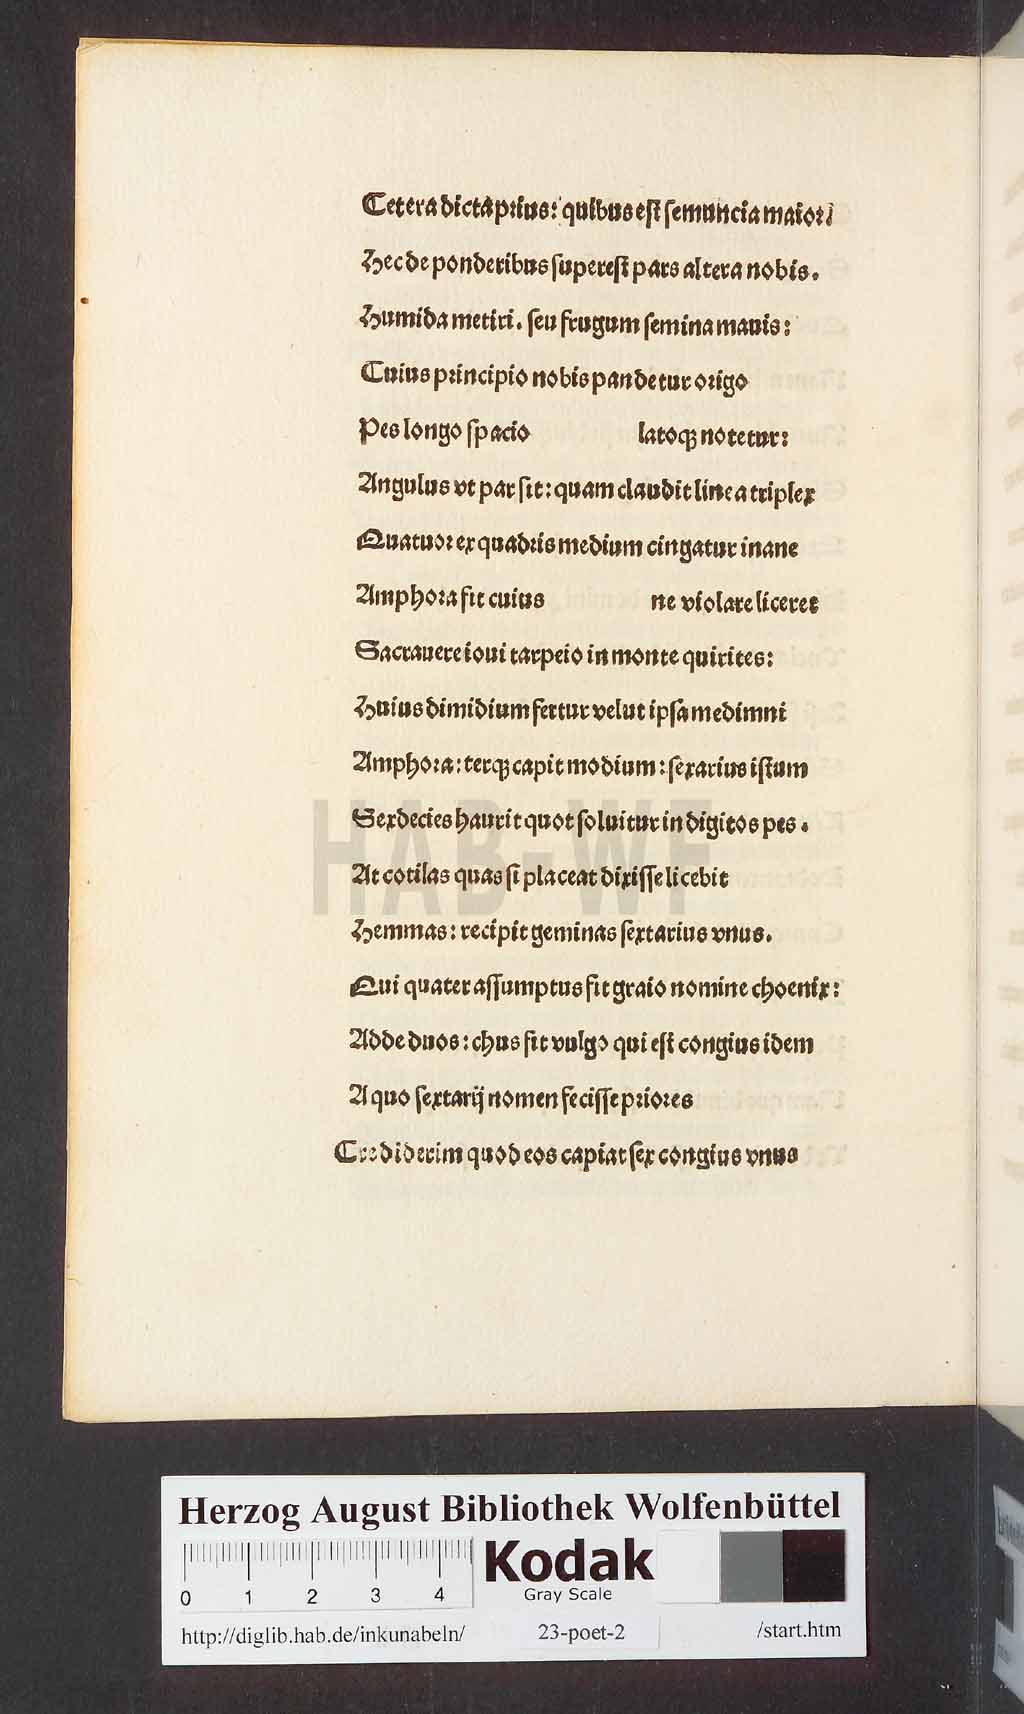 Cetera dicta prius: quibus est semuncia maiori
Hec de ponderibus superest pars altera nobis.
Humida metiri. seu frugum semina mauis:
Cuius principio nobis pandetur origo
Pes longo spacio latoqꝫ notetur:
Angulus vt par sit: quam claudit linea triplex
Quatuor ex quadris medium cingatur inane
Amphora fit cuius ne violare liceret
Sacrauere ioui tarpeio in monte quirites:
Huius dimidium fertur velut ipsa medimni
Amphora: terqꝫ capit modium: sexarius istum
Sexdecies haurit quot soluitur in digitos pes.
At cotilas quas si placeat dixisse licebit
Hemmas: recipit geminas sextarius vnus.
Qui quater assumptus fit graio nomine choenix:
Adde duos: chus fit vulgo qui est congius idem
A quo sextarij nomen fecisse priores
Crediderim quod eos capiat sex congius vnus
HAB-WF
Herzog August Bibliothek Wolfenbüttel
0 1 2 3 4
Kodak
Gray Scale
http://diglib.hab.de/inkunabeln/ 23-poet-2 /start.htm